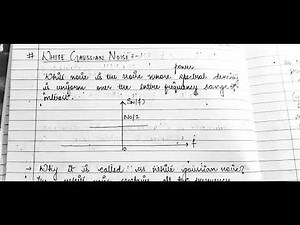 # WHITE GAUSSIAN NOISE:-
power
White noise is the noise whose spectral density
is uniform over the entire frequency range of
interest.
Sn(f)
No/2
f
→ Why it is called as white gaussian noise?